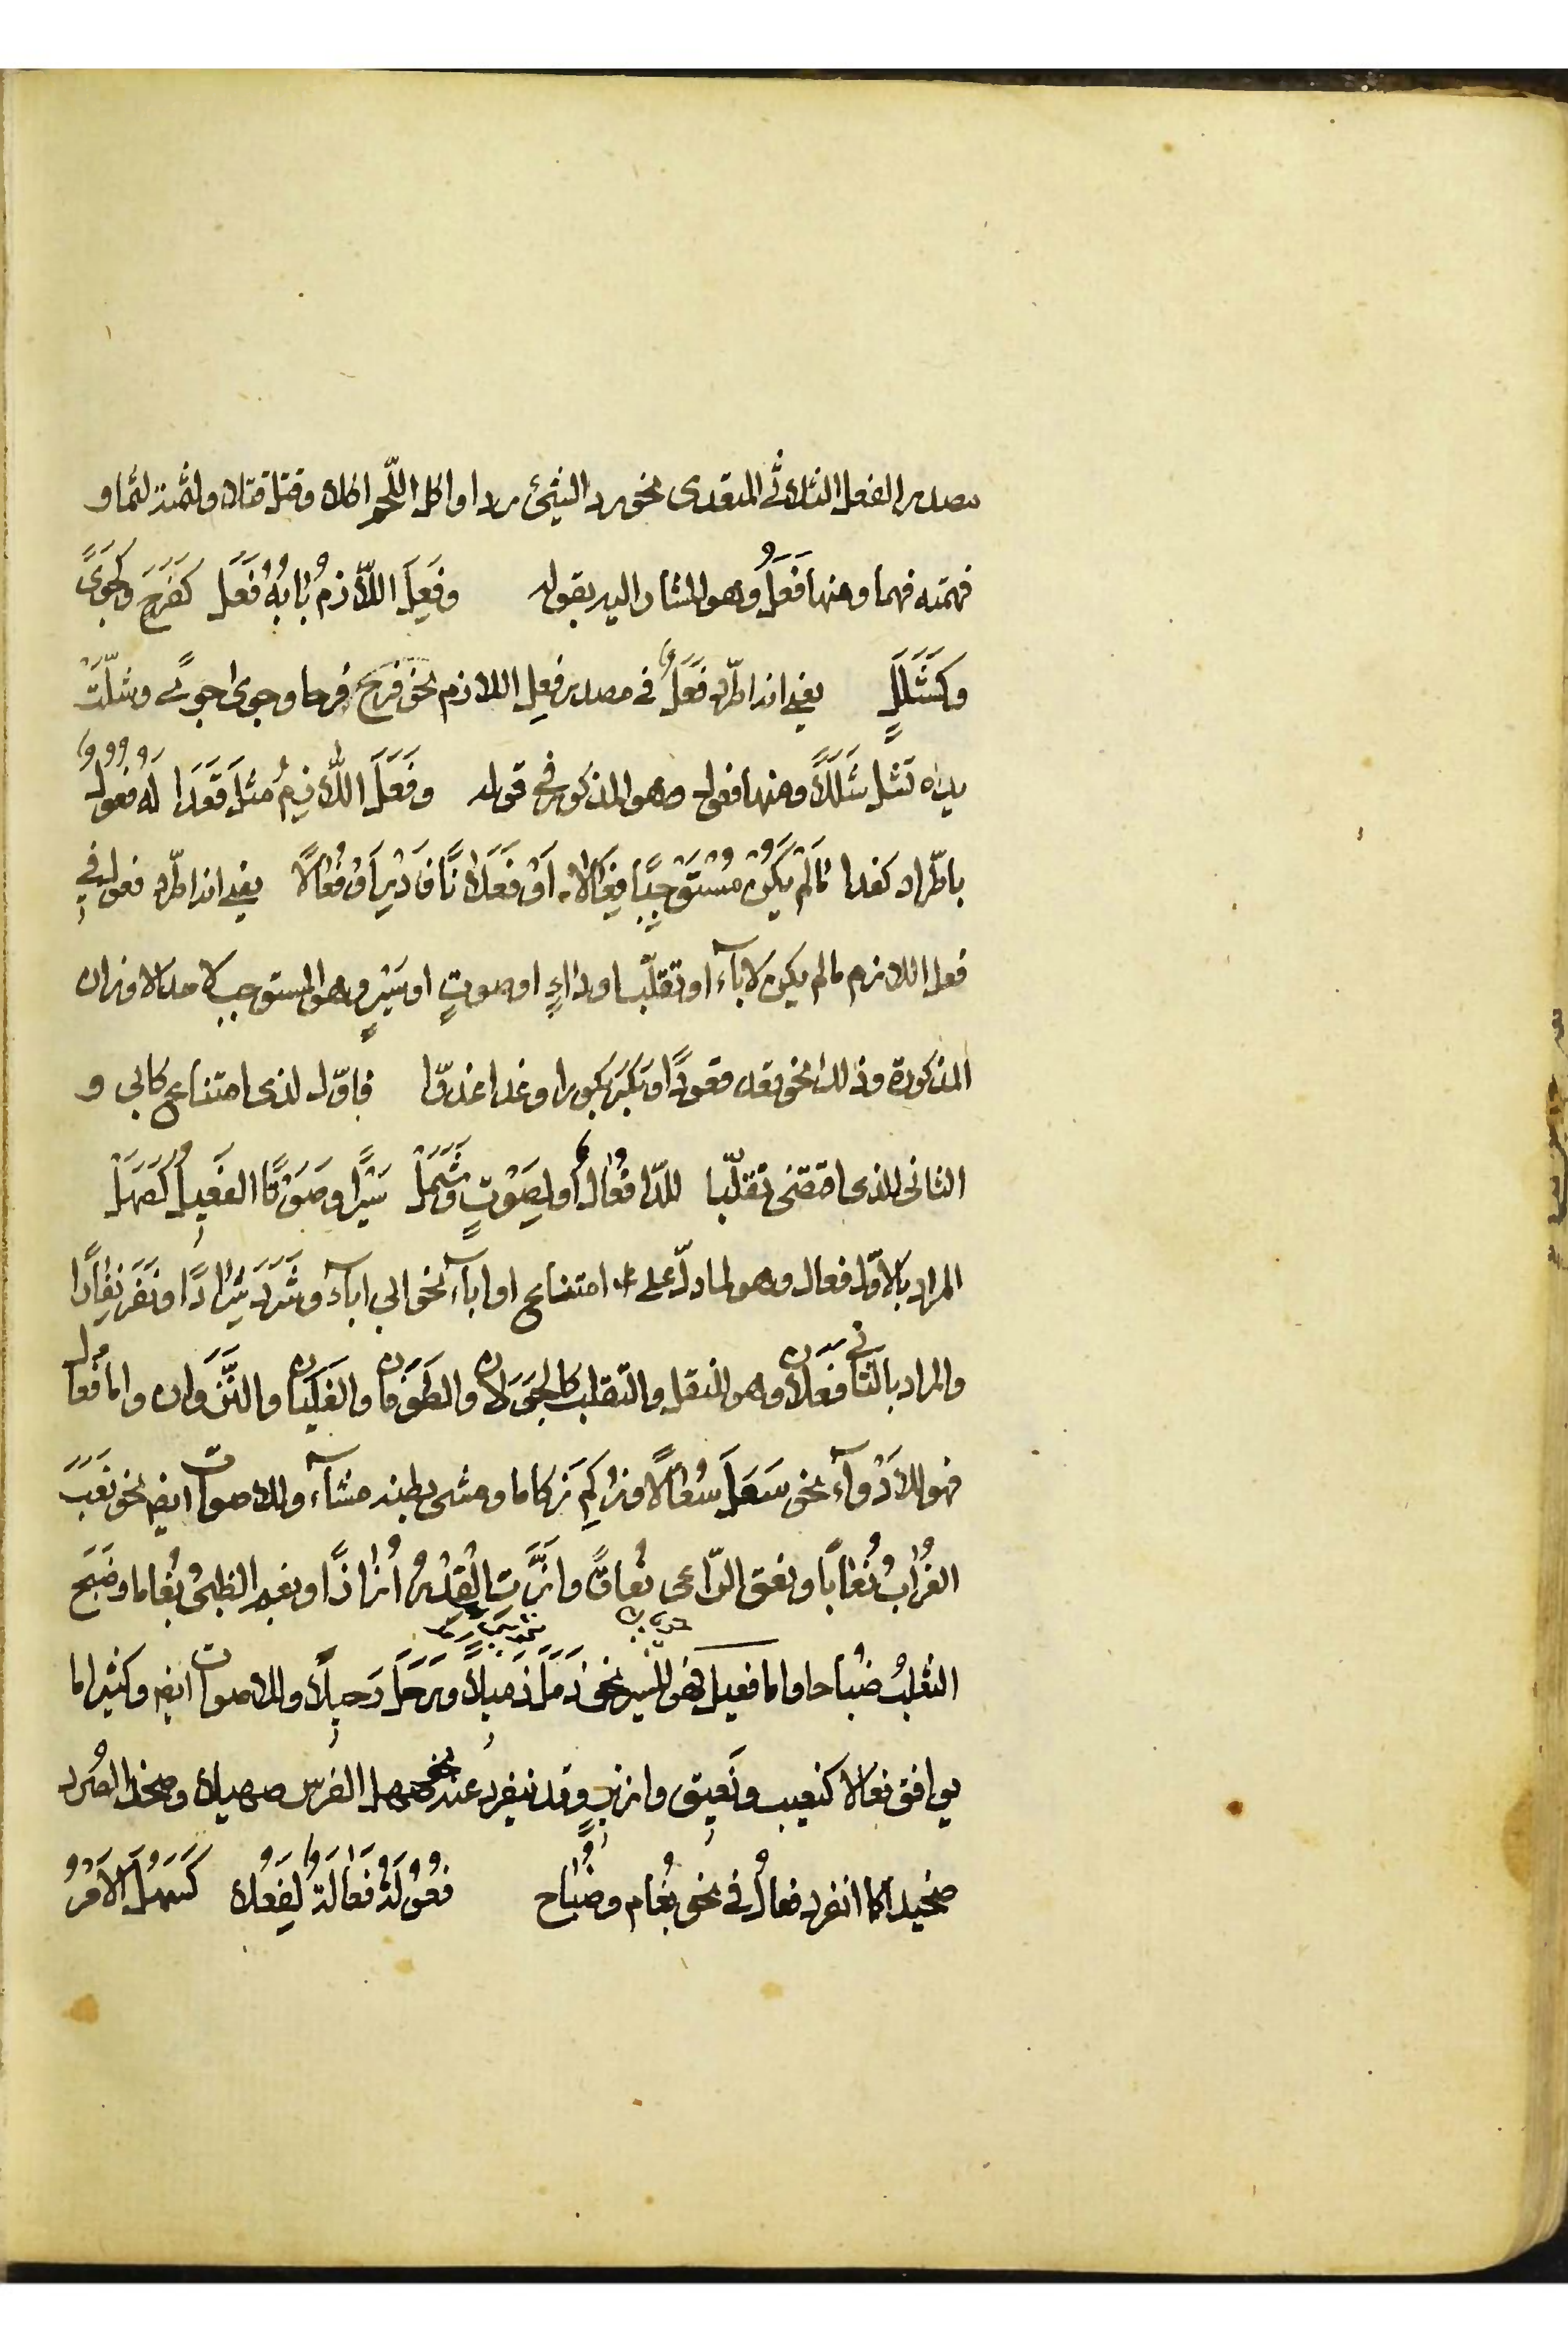 مصدر الفعل الثلاثي المتعدى نحو رد الشئ ردا واكل اللّحم اكلا وقتل قتلا ولثمته لثما و
فهمته فهما ومنها فَعَلٌ وهو المشار اليه بقوله وفَعِلَ اللّازمُ بٰابُهُ فَعَل كَفَرَحٍ وكَجَوىً
وكَشَلَلٍ يعنى انه اطّرد فَعَلٌ فى مصدر فعِل اللازم نحو فرح فرحا وجوى جوىً وشلّتْ
يده تشل شَلَلًا ومنها فعول وهو المذكور فى قوله وفَعَلَ اللّازِمُ مثلَ قَعَدَا لَهُ فُعُولٌ
باطّراد كغدا مٰالَمْ يَكُنْ مُسْتَوْجِبًا فِعَالا اَوْ فَعَلانًا فَادْرِ اَوْ فُعٰالًا يعنى انه اطّرد فعول فى
فعل اللازم مالم يكن لاباء او تقلّب او داءٍ او صوتٍ او سَيْرٍ وهو المستوجب لاحد الاوزان
المذكورة وذلك نحو قعد قعودًا وبَكَرَ بكورا وغدا غدوّا فاوّل لذى امتناع كابى و
الثانى للذى اقتضى تقلّبا للدّا فُعٰالٌ او لِصَوْتٍ وشَمَلْ سَيْرًا وصَوْتًا الفَعِيلُ كَصَهَلْ
المراد بالاوّل فعال وهو لما دلّ على امتناع او اباء نحو ابى اباء وشَرَدَ شِرٰادًا ونَفَرَ نِفٰارًا
والمراد بالثانى فَعَلان وهو للنقل والتقلب كالجَوَلان والطَوَفان والغَلَيان والنَّزَوان واما فُعال
فهو للاَدْوٰاء نحو سَعَلَ سُعٰالًا وزُكِمَ زكاما ومشى بطنه مشاء وللاصوات ايضا نحو نَعَبَ
الغُرٰابُ نُعٰابًا ونعق الرّاعى نُعاقًا وازَّتِ الْقِدْرُ اُزٰازًا وبغم الظبىُ بُغاما وضَبَحَ
الثعلبُ ضُبٰاحا واما فعيل فهو للسير نحو ذَمَلَ ذَمِيلًا ورَحَلَ رَحِيلًا وللاصوات ايضا وكثيرا ما
يوافق فعالا كنعيب ونَعِيق وازيزٍ وقد ينفرد عنه نحو صهل الفرس صهيلا وصخد الصُرد
صخيدا كما انفرد فعالٌ فى نحو بُغام وضُبٰاح فُعُولَةٌ فَعٰالَةٌ لِفَعُلا كَسَهُلَ الاَمْرُ